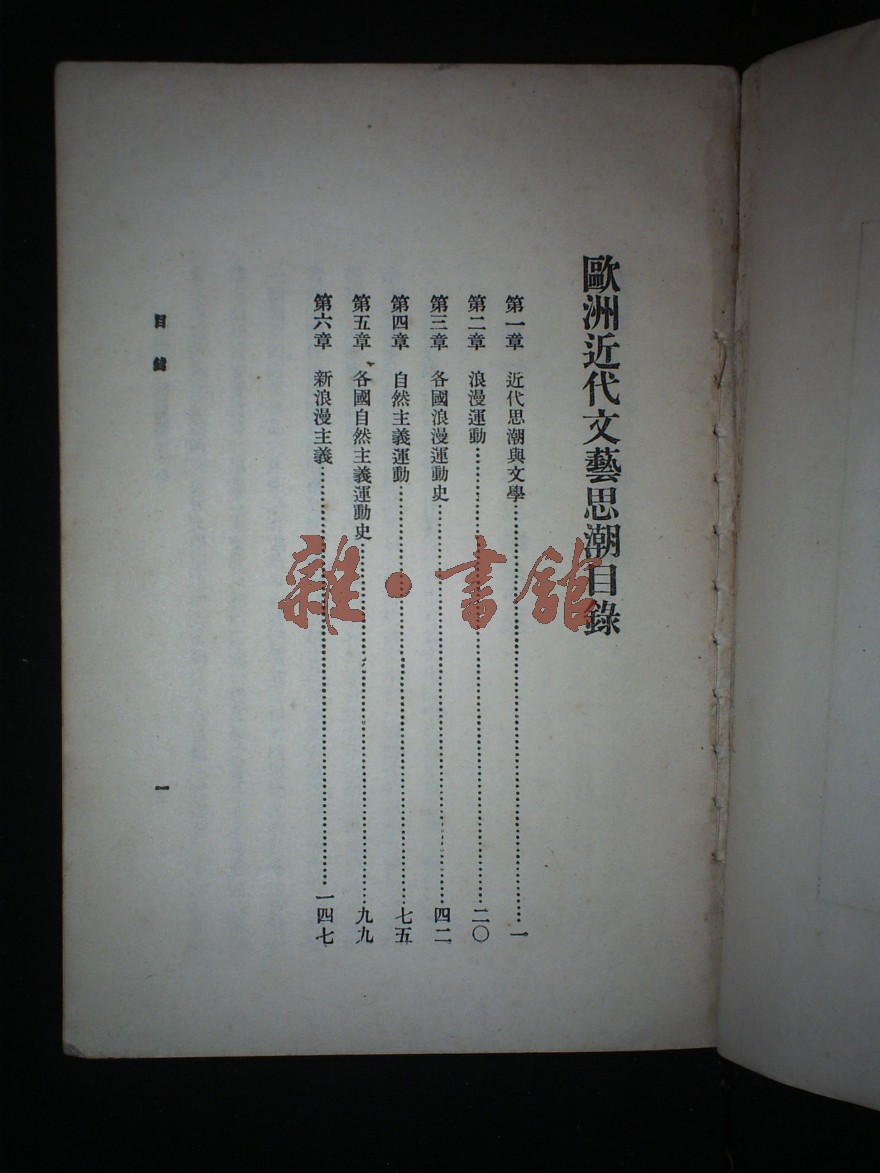 歐洲近代文藝思潮目錄
第一章 近代思潮與文學…………一
第二章 浪漫運動…………二〇
第三章 各國浪漫運動史…………四二
第四章 自然主義運動…………七五
第五章 各國自然主義運動史…………九九
第六章 新浪漫主義…………一四七
目錄
一
雜·書館